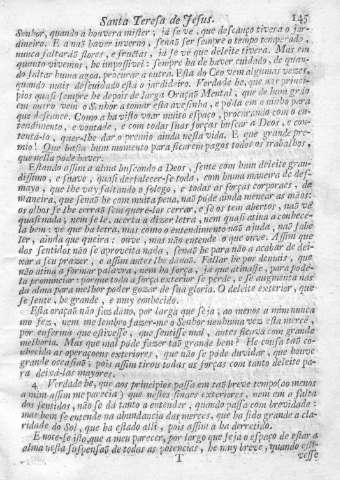 Santa Teresa de Jesus. 145
Senhor, quando a houvera mister, já se ve, que descanço tivera o jar-
dineiro. E a nao haver inverno, senaõ ser sempre o tempo temperado,
nunca faltaráõ flores, e fructas, já se ve que deleite tivera. Mas em
quanto vivemos, he impossivel: sempre ha de haver cuidado, de quan-
do faltar huma agoa, procurar a outra. Esta do Ceo vem algumas vezes,
quando mais descuidado está o jardineiro. Verdade he, que aos princi-
pios quasi sempre he depois de larga Oraçaõ Mental, que de hum gráo
em outro vem o Senhor a tomar esta avesinha, e póla em o ninho para
que descance. Como a ha visto voar muito espaço, procurando com o en-
tendimento, e vontade, e com todas suas forças buscar a Deos, e con-
tentá-lo, quer-lhe dar o premio ainda nesta vida. E que grande pre-
mio! Que basta hum momento para ficarem pagos todos os trabalhos,
que nella póde haver.
Estando assim a alma buscando a Deos, sente com hum deleite gran-
dissimo, e suave, quasi desfalecer-se toda, com huma maneira de des-
mayo, que lhe vay faltando o folego, e todas as forças corporaes, de
maneira, que senaõ he com muita pena, naõ póde ainda menear as mãos:
os olhos se lhe cerraõ sem querê-los cerrar, e se os tem abertos, naõ vê
quasi nada; nem se lê, acerta a dizer letra, nem quasi atina a conhece-
la bem: vê que ha letra, mas como o entendimento naõ ajuda, naõ sabe
ler, ainda que queira: ouve, mas naõ entende o que ouve. Assim que
dos sentidos naõ se aproveita nada, senaõ he para naõ a acabar de dei-
xar a seu prazer, e assim antes lhe danaõ. Fallar he por demais, que
naõ atina a formar palavra, nem ha força, já que atinasse, para podê-
la pronunciar: porque toda a força exterior se perde, e se augmenta nas
da alma para melhor poder gozar de sua gloria. O deleite exterior, que
se sente, he grande, e muy conhecido.
Esta oraçaõ naõ faz dano, por larga que seja, ao menos a mim nunca
mo fez, nem me lembro fazer-me o Senhor nenhuma vez esta merce,
por enferma que estivesse, que sentisse mal, antes ficava com grande
melhoria. Mas que mal póde fazer taõ grande bem? He cousa taõ co-
nhecido as operaçoens exteriores, que naõ se póde duvidar, que houve
grande occasiaõ; pois assim tirou todas as forças com tanto deleite pa-
ra deixá-las mayores.
4. Verdade he, que aos principios passa em taõ breve tempo (ao menos
a mim assim me parecia) que nestes sinaes exteriores, nem em a falta
dos sentidos, naõ se dá tanto a entender, quando passa com brevidade:
mas bem se entende na abundancia das merces, que ha sido grande a cla-
ridade do Sol, que ha estado alli, pois assim a ha derretido.
E note-se isto, que a meu parecer, por largo que seja o espaço de estar a
alma nesta suspensaõ de todas as potencias, he muy breve, quando esti-
T vesse